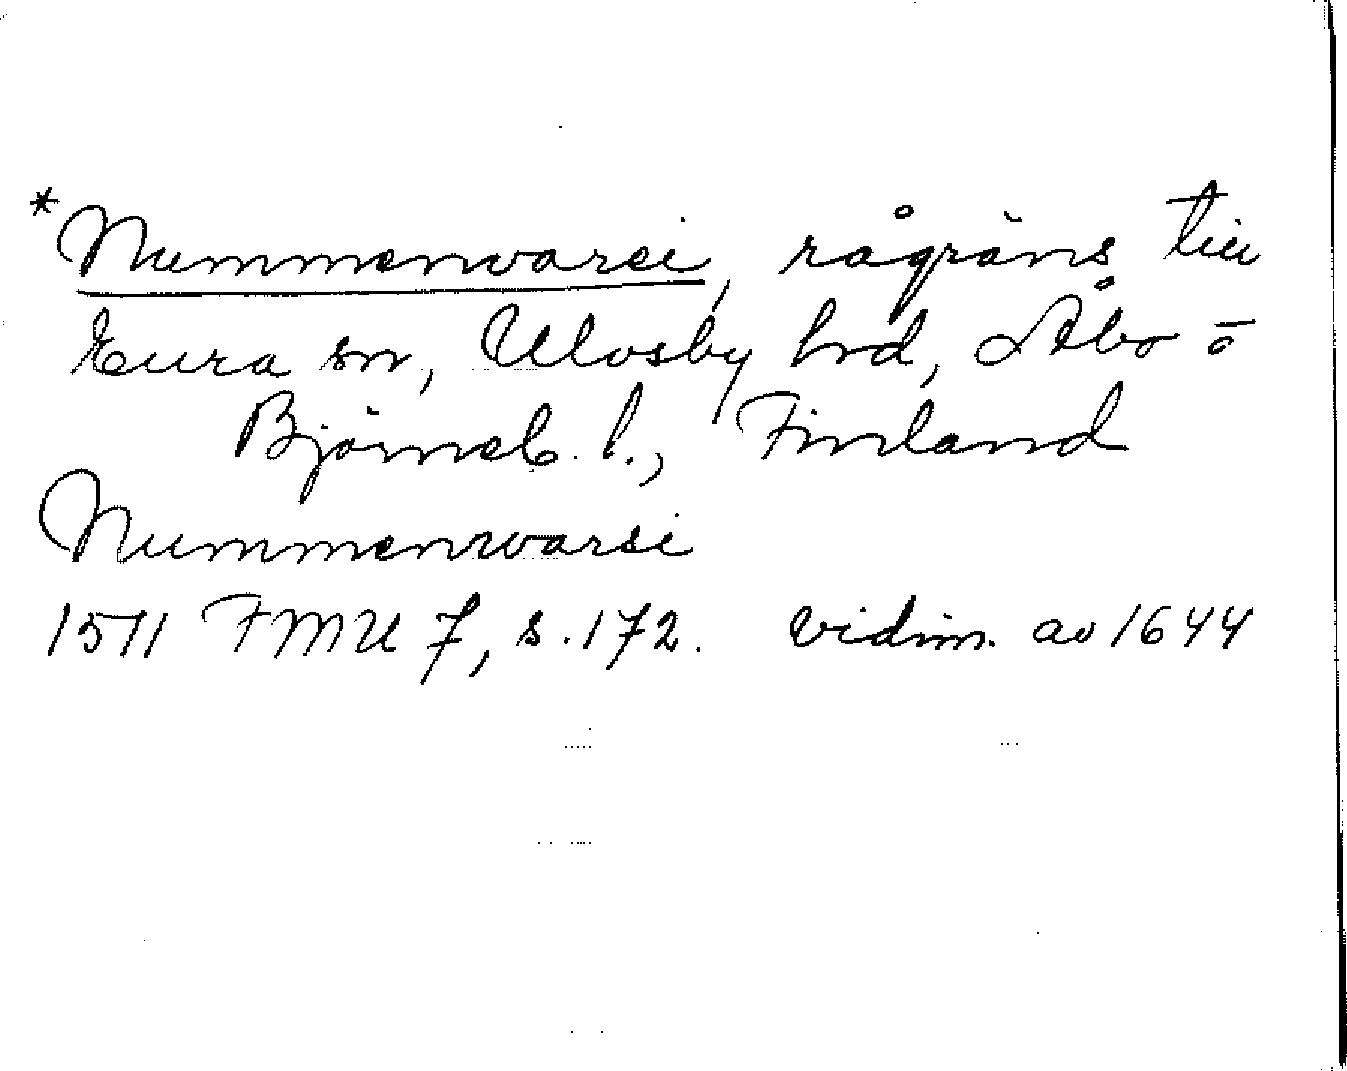 *Nummenvarsi, rågräns till
Eura sn, Ulvsby hd, Åbo o
Björneb. l., Finland
Nummenwarsi
1511 FMU 7, s. 172. Vidim. av 1644